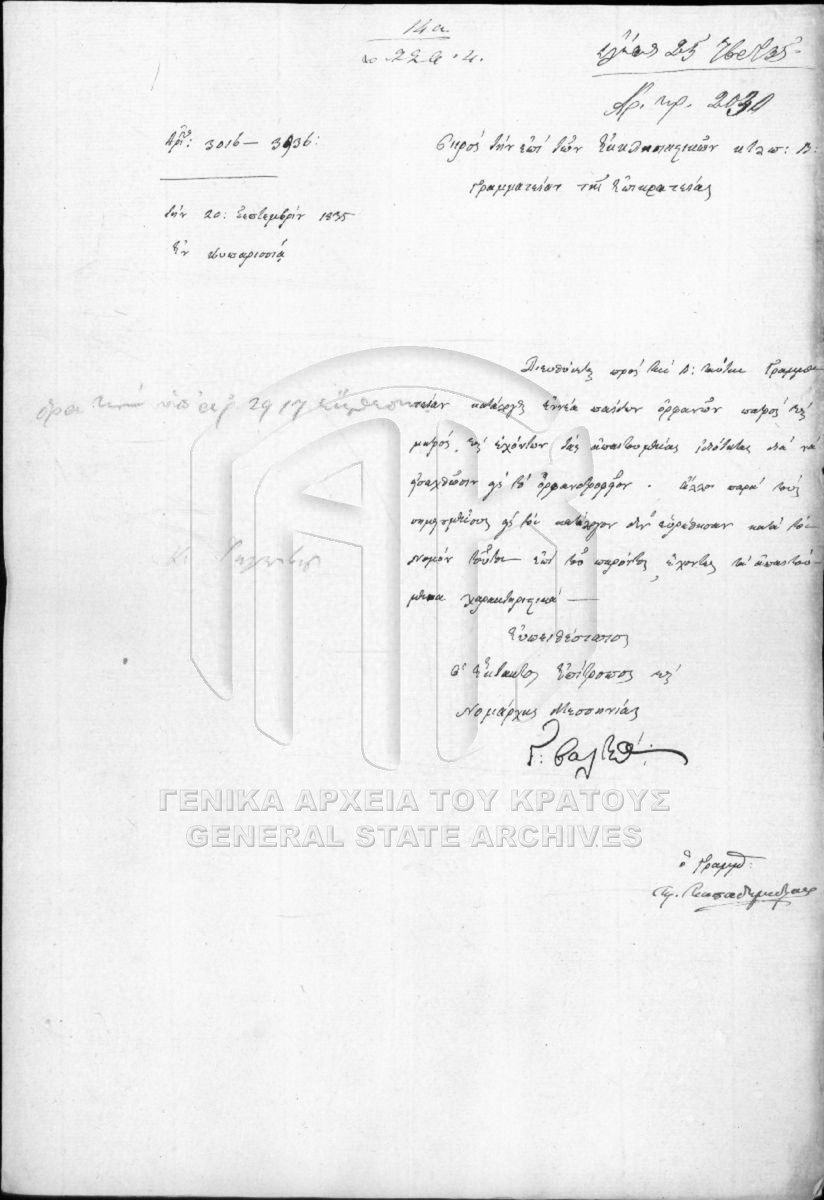 14α
ἐλήφθη 25 7βρίου 35
Ἀρ. πρ. 2030
Ἀρ: 3016 – 3936:
Πρὸς τὴν ἐπὶ τῶν Ἐκκλησιαστικῶν κτλπ: Β:
Γραμματείαν τῆς Ἐπικρατείας
τὴν 20: Σεπτεμβρίου 1835
Ἐν Κυπαρισσίᾳ
Διευθύνεται πρὸς τὴν Β: ταύτην Γραμμα
τείαν κατάλογος ἐννέα παίδων ὀρφανῶν πατρὸς καὶ
μητρὸς, καὶ ἐχόντων τὰς ἀπαιτουμένας ἰδιότητας διὰ νὰ
εἰσαχθῶσιν εἰς τὸ ὀρφανοτροφεῖον. ἄλλοι παρὰ τοὺς
σημειωμένους εἰς τὸν κατάλογον δὲν εὑρέθησαν κατὰ τὸν
Νομὸν τοῦτον ἐπὶ τοῦ παρόντος, ἔχοντες τὰ ἀπαιτού-
μενα χαρακτηριστικά —
Εὐπειθέστατος
Ὁ Ἔκτακτος Ἐπίτροπος καὶ
Νομάρχης Μεσσηνίας
ὁ Γραμμ:
ΓΕΝΙΚΑ ΑΡΧΕΙΑ ΤΟΥ ΚΡΑΤΟΥΣ
GENERAL STATE ARCHIVES